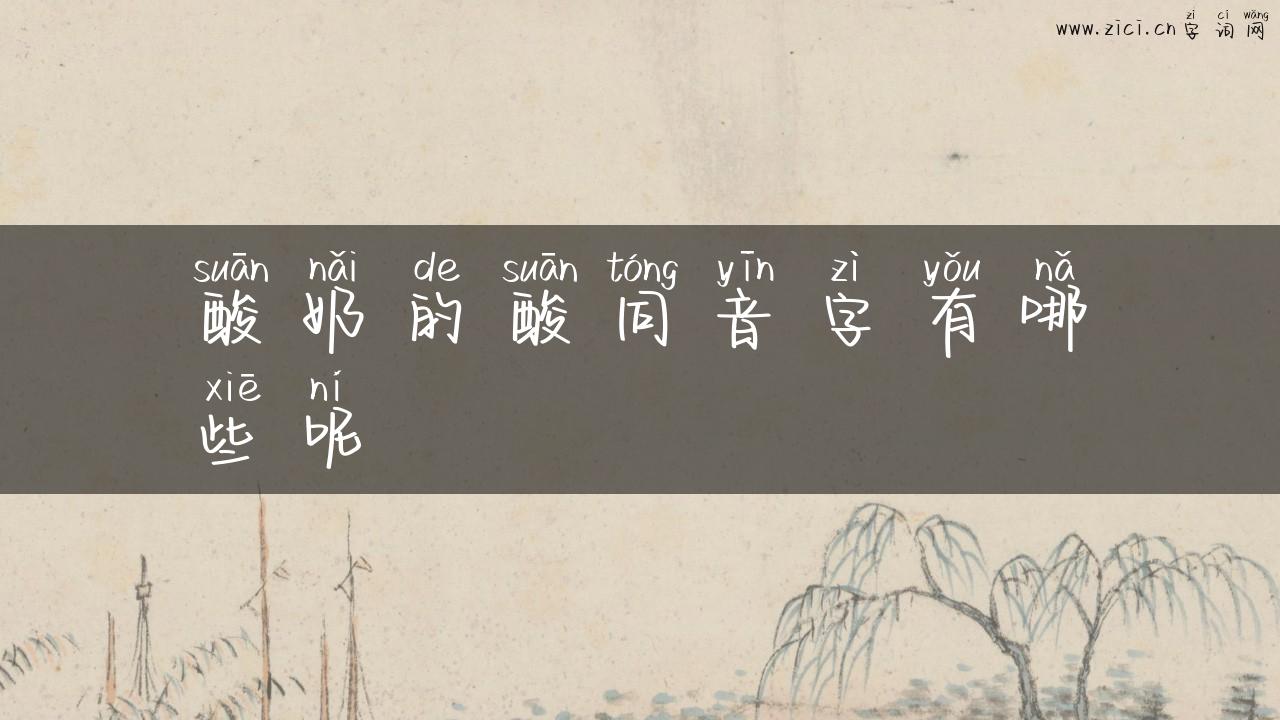 zì cí wǎng
www.zici.cn 字词网
suān nǎi de suān tóng yīn zì yǒu nǎ
酸奶的酸同音字有哪
xiē ní
些呢